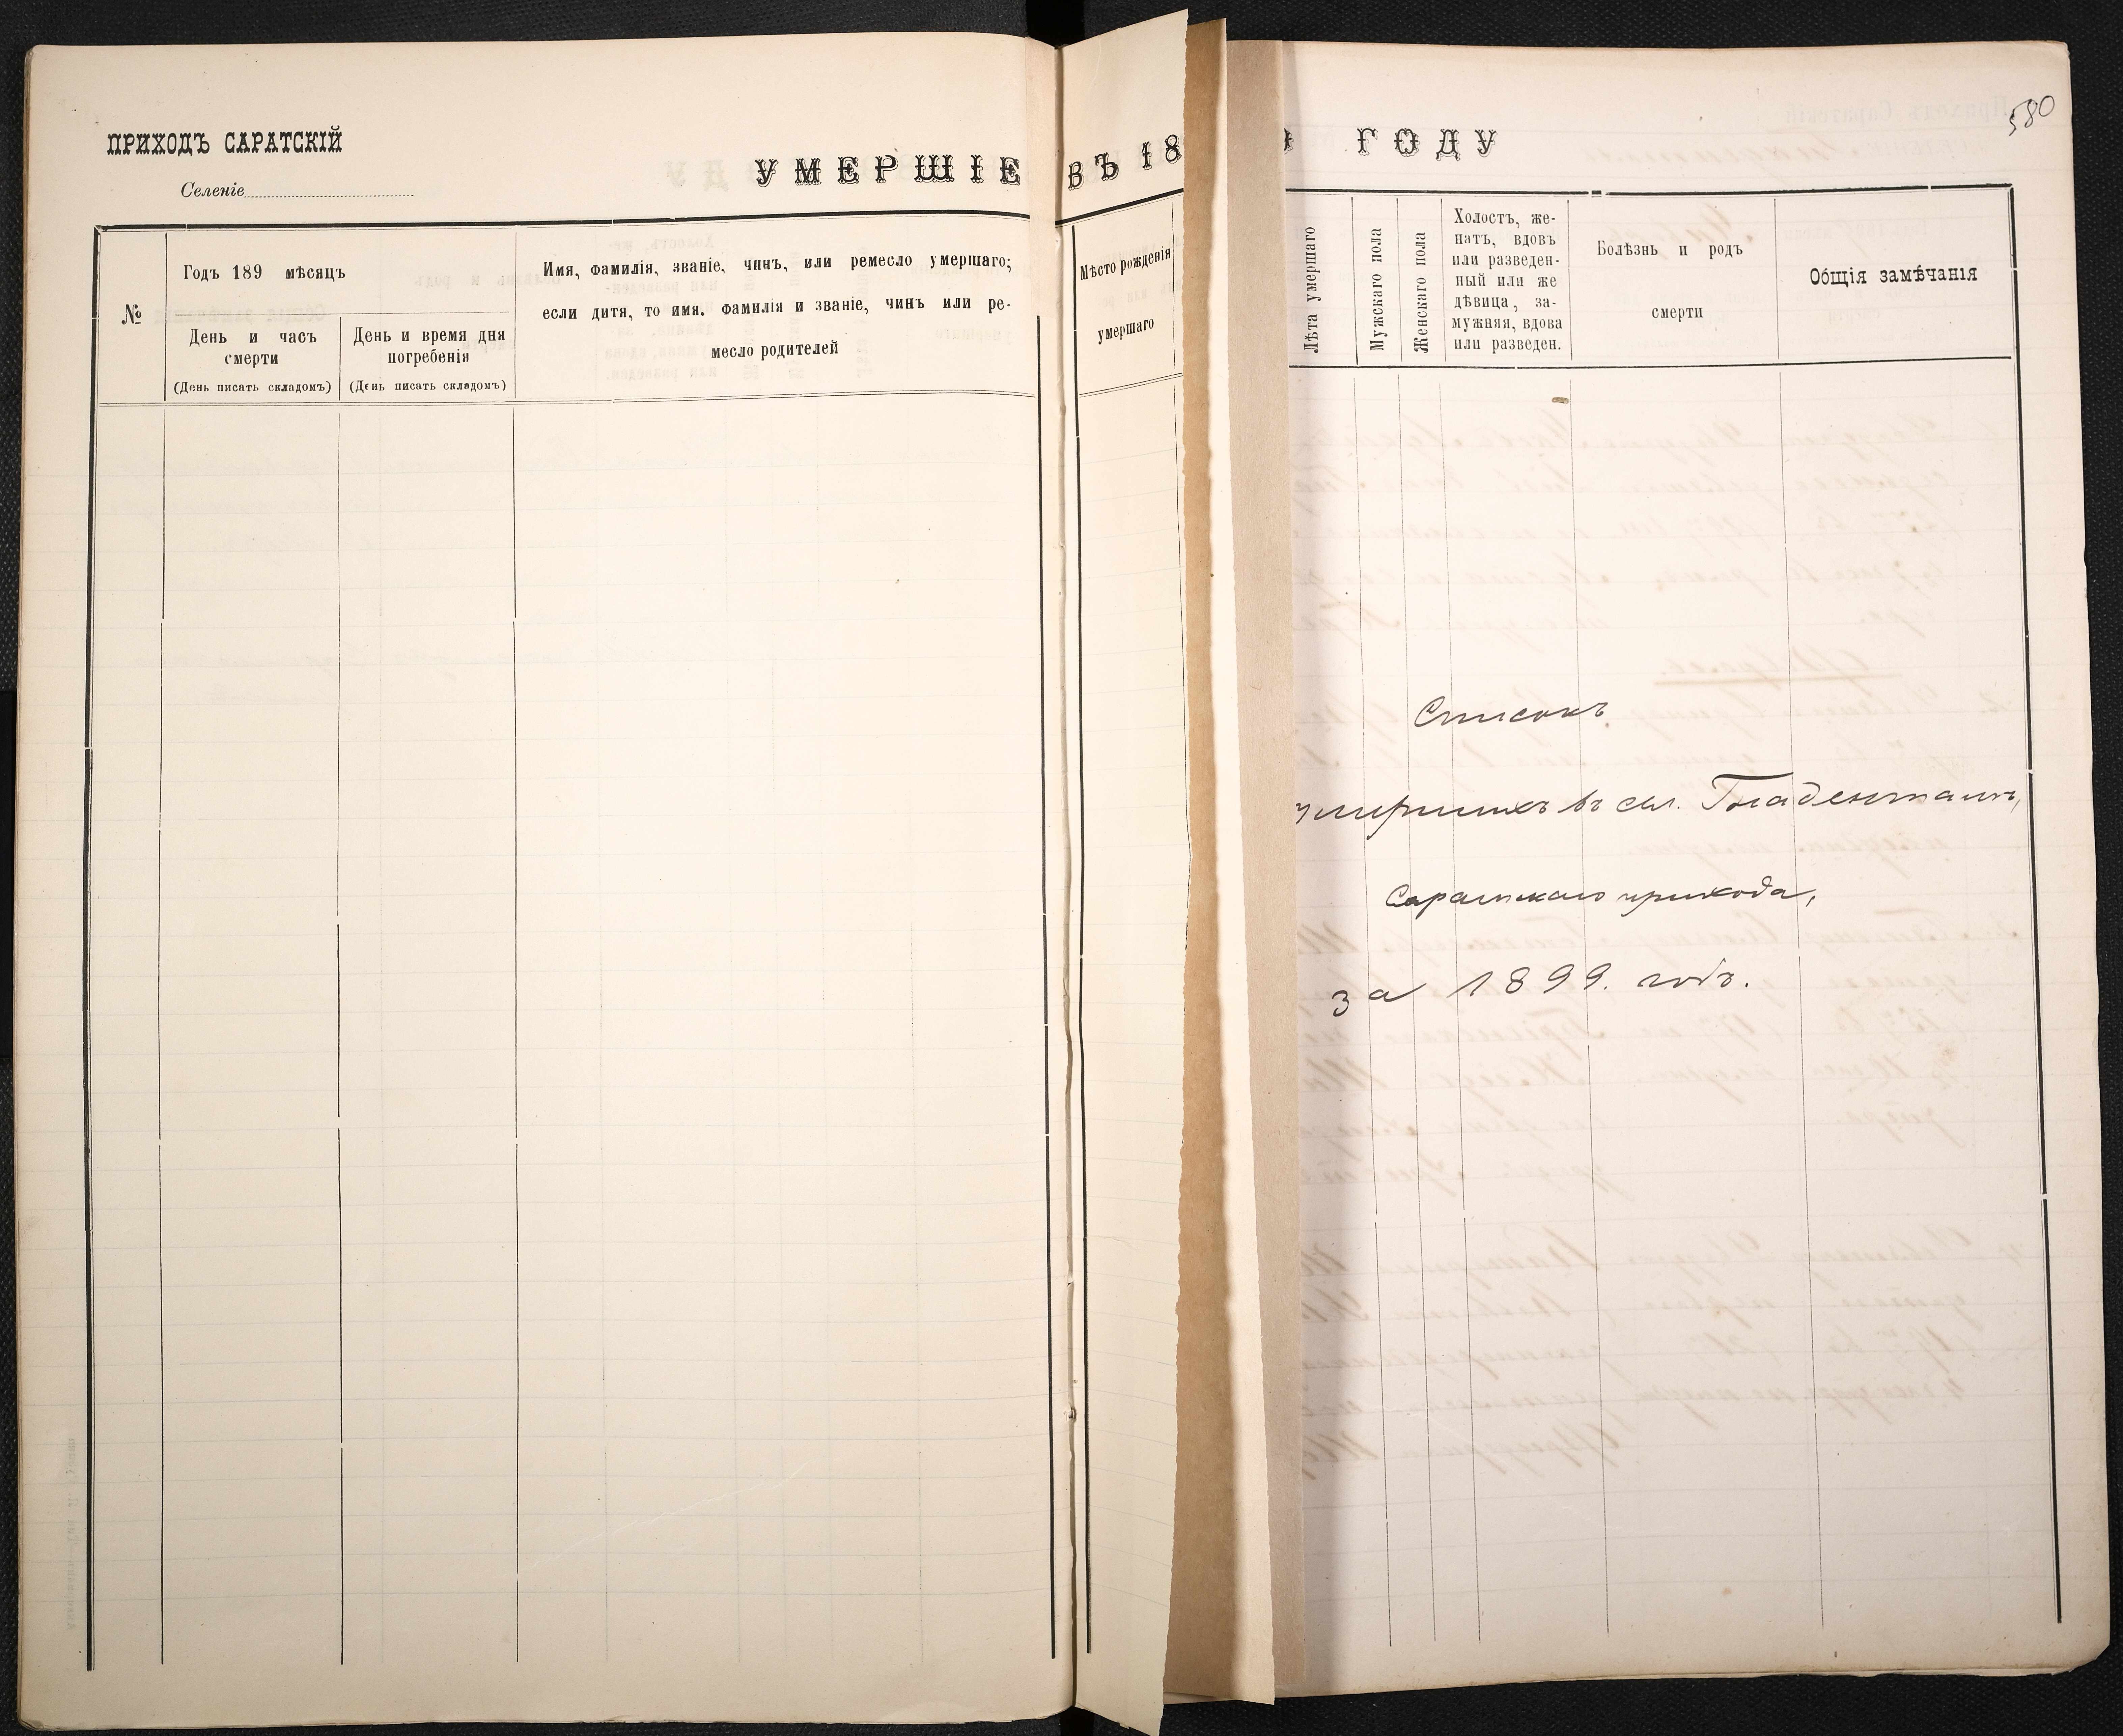 ПРИХОДЪ САРАТСКІЙ
Селеніе
УМЕРШІЕ ВЪ 18
№
Годъ 189 мѣсяцъ
День и часъ
смерти
(День писать складомъ)
День и время дня
погребенія
(День писать складомъ)
Имя, фамилія, званіе, чинъ, или ремесло умершаго;
если дитя, то имя. фамилія и званіе, чинъ или ре-
месло родителей
Мѣсто рожденія
умершаго
580
ГОДУ
Лѣта умершаго
Мужскаго пола
Женскаго пола
Холостъ, же-
натъ, вдовъ
или разведен-
ный или же
дѣвица, за-
мужняя, вдова
или разведен.
Болѣзнь и родъ
смерти
Общія замѣчанія
Списокъ
умершихъ въ сел. Гнаденталѣ,
Саратскаго прихода,
за 1899. годъ.